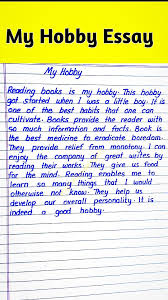 My Hobby Essay
My Hobby
Reading books is my hobby. This hobby
got started when I was a little boy. It is
one of the best habits that one can
cultivate. Books provide the reader with
so much information and facts. Book is
the best medicine to eradicate boredom.
They provide relief from monotony. I can
enjoy the company of great writes by
reading their works. They give us food
for the mind. Reading enables me to
learn so many things that I would
otherwise not know. They help us
develop our overall personality. It is
indeed a good hobby.